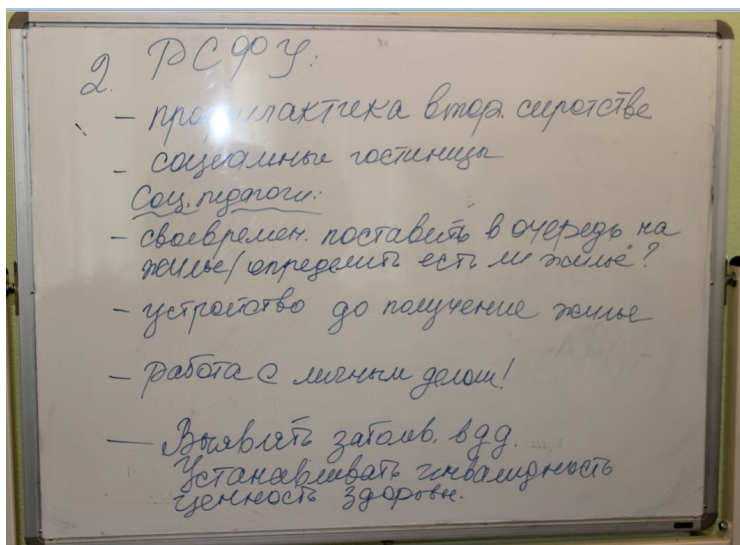 2. РСФУ:
- профилактика втор. сиротстве
- социальные гостиницы
Соц. педагоги:
- своевремен. поставить в очередь на
жилье/определить есть ли жильё?
- устройство до получение жилье
- Работа с личным делом!
- Выявлять заболев. в д.д.
Устанавливать инвалидность
ценность здоровья.